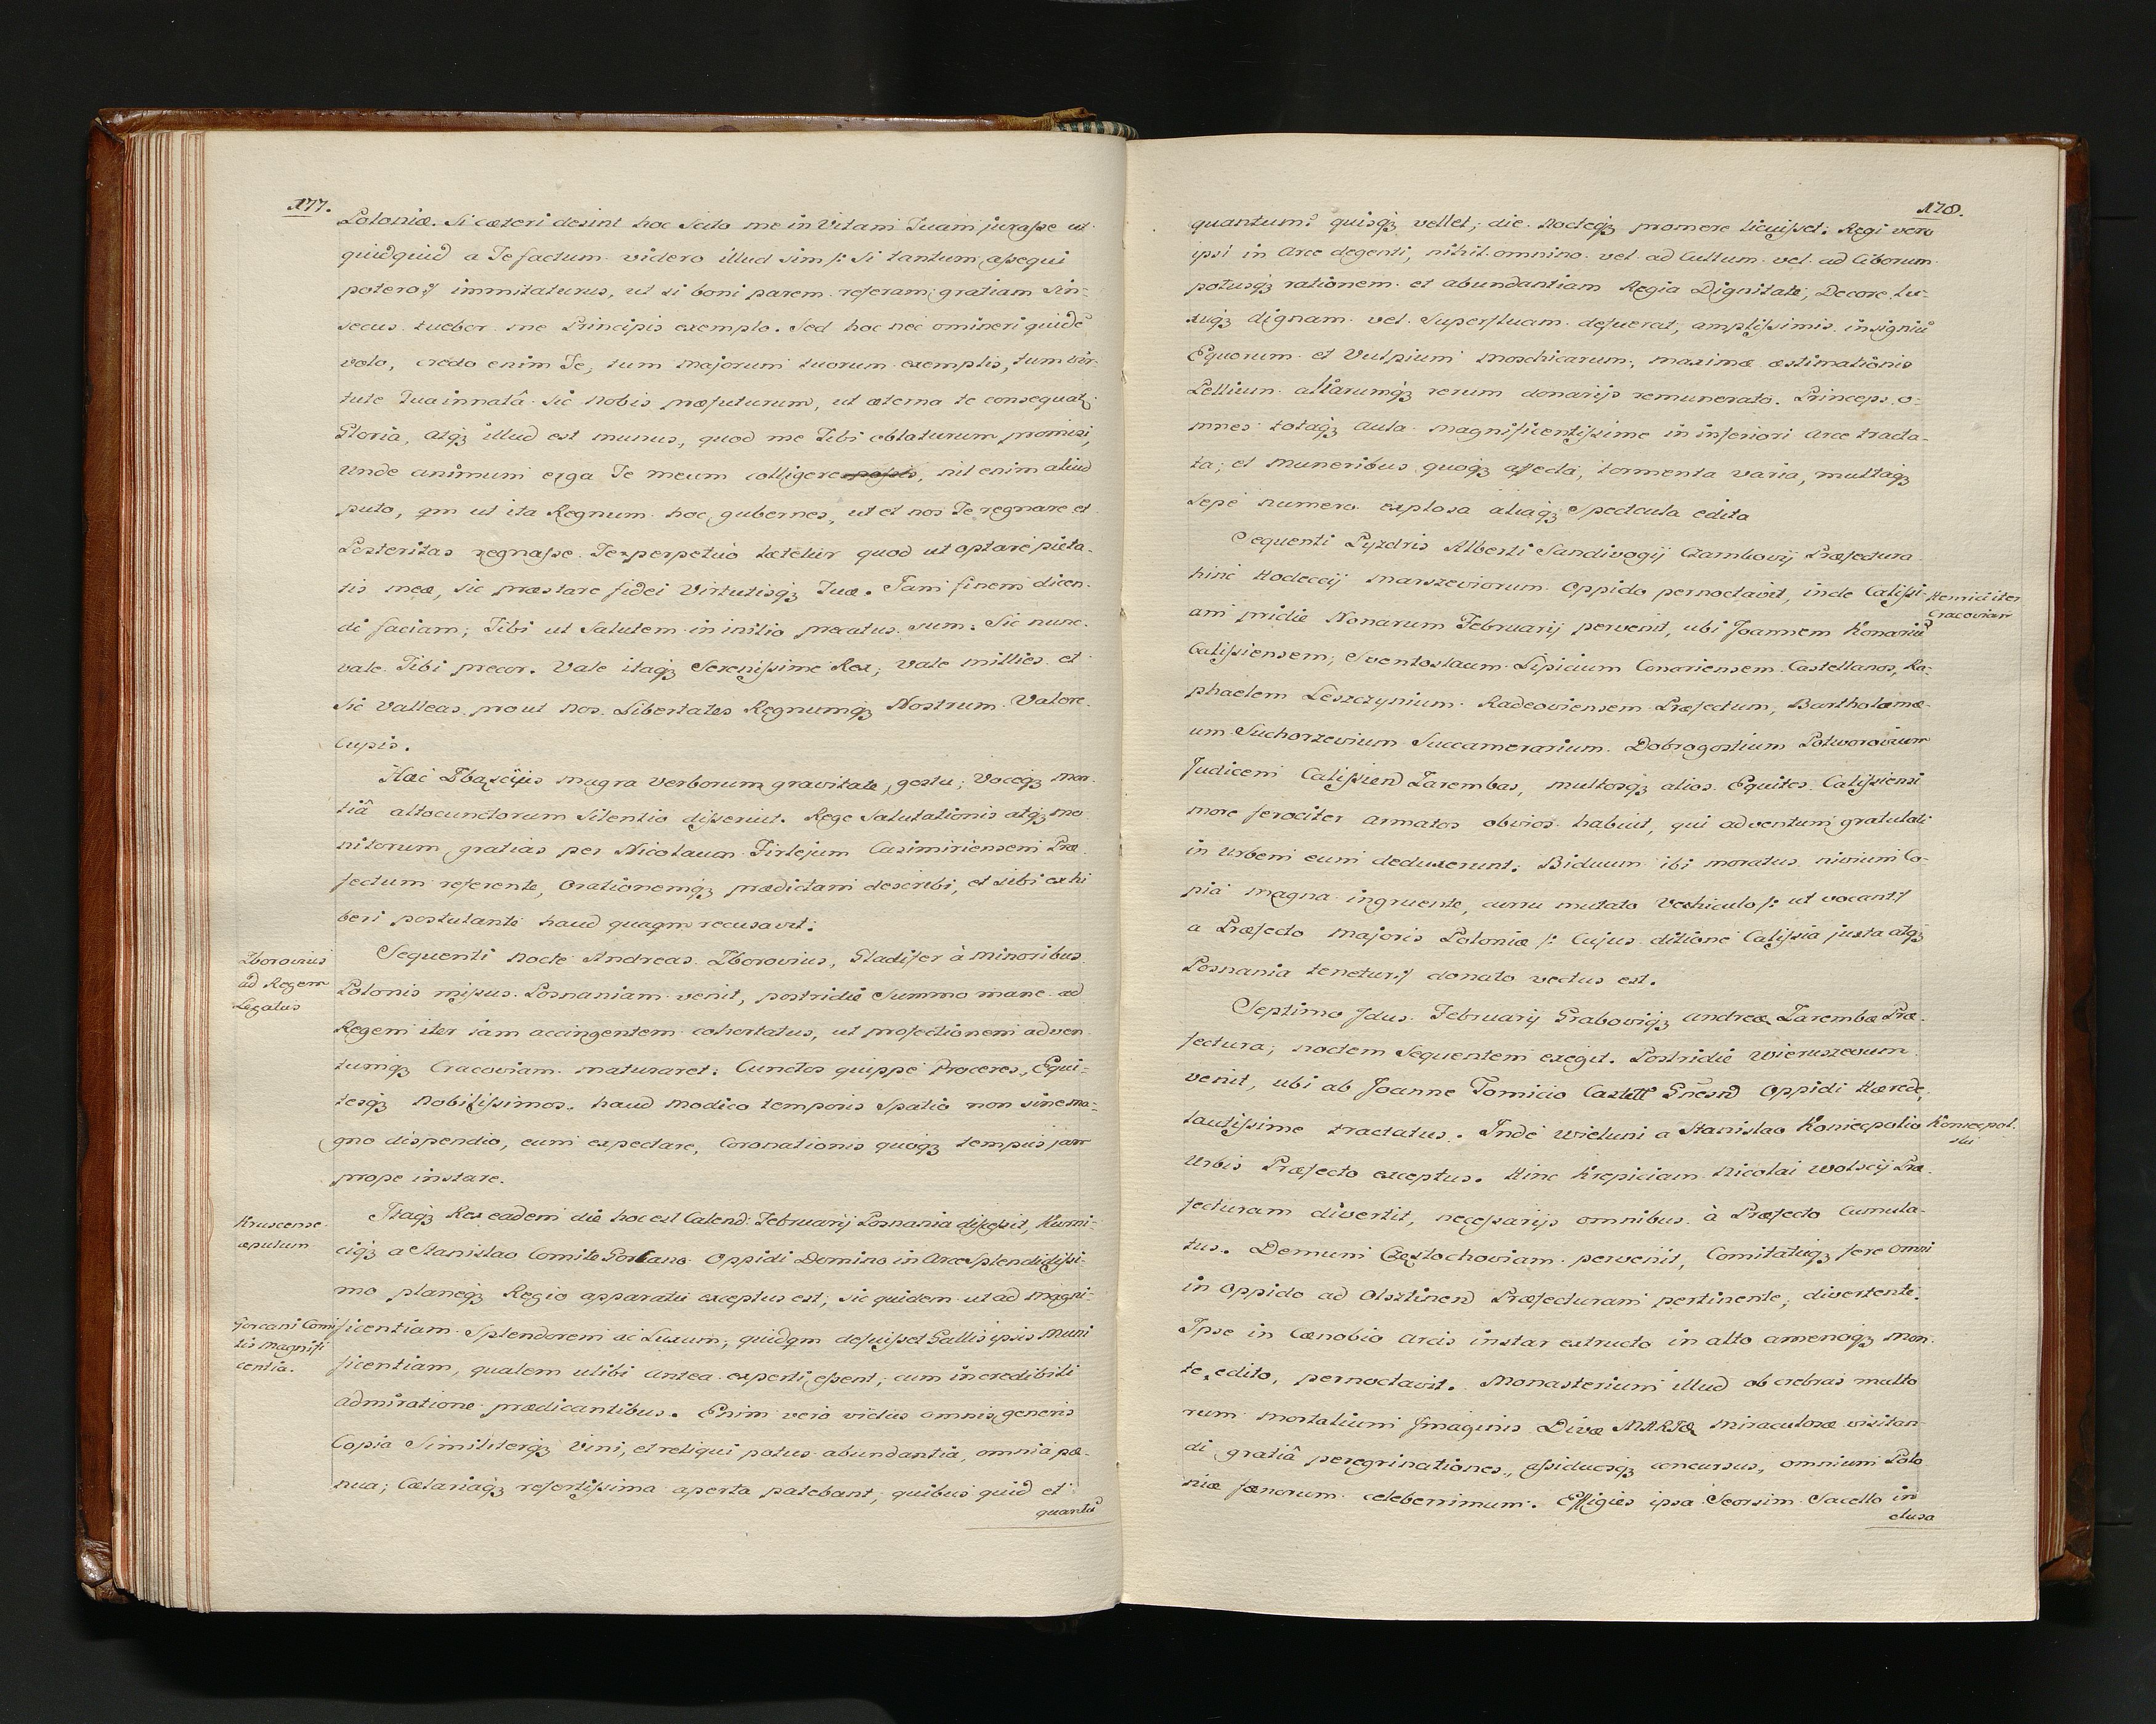 177.
Poloniæ. Si cæteri desint hoc Scito me in Vitam Tuam jurasse ut
quidquid a Te factum videro illud sim /: Si tantum assequi
potero :/ immitaturus, ut si boni parem referam gratiam sin-
secus tuebor me Principis exemplo. Sed hoc nec omineri quidē
volo, credo enim Te, tum Majorum tuorum exemplis, tum vir-
tute Tua innatâ sic Nobis præfuturum, ut æterna te consequat
Gloria, atqȝ illud est munus, quod me Tibi oblaturum promisi,
Unde animum erga Te meum colligere possis, nil enim aliud
puto, qm ut ita Regnum hoc gubernes, ut et nos Te regnare et
Posteritas regnasse Te perpetuo lætetur quod ut optare pieta-
tis meæ, sic præstare fidei Virtutisqȝ Tuæ. Jam finem dicen-
di faciam; Tibi ut Salutem in initio precatus sum. Sic nunc
vale Tibi precor. Vale itaqȝ Serenissime Rex; Vale millies et
Sic Valleas prout nos Libertates Regnumqȝ Nostrum Valore
Cupis.
Hæc Zbaszijus magra Verborum gravitate, gestu, Voceqȝ mar-
tiâ alto cunctorum Silentio disseruit. Rege Salutationis atqȝ mo
nitorum gratias per Nicolaum Firlejum Casimiriensem Præ
fectum referente, Orationemqȝ prædictam describi, et sibi exhi
beri postulante haud quaqm recusavit.
Zborovius
ad Regem
Legatus
Sequenti Nocte Andreas Zborovius, Gladifer à Minoribus
Polonis missus Posnaniam venit, postridie Summo mane ad
Regem iter jam accingentem cohortatus, ut profectionem adven
tumqȝ Cracoviam maturaret. Cunctos quippe Proceres, Equi-
tesqȝ Nobilissimos haud Modico temporis Spatio non sine ma-
gno dispendio, eum expectare, Coronationis quoqȝ tempus jam
prope instare.
Kruscense
æpulum
Itaqȝ Rex eadem die hoc est Calend: Februarij Posnania discessit, Kurni-
ciqȝ a Stanislao Comite Gorcano Oppidi Domino in Arce Splendidissi-
mo planeqȝ Regio apparatu exceptus est; sic quidem ut ad Magni-
Gorcani Comi
tis Magnifi
centia.
ficentiam Splendorem ac Luxum, quidqm defuisset Gallis ipsis Muni
ficentiam, qualem ulibi antea experti essent, cum incredibili
admiratione prædicantibus. Enim vero victus omnis generis
Copia Similiterqȝ Vini, et reliqui potus abundantia, omnia pæ-
nua; Cælariaqȝ refertissima aperta patebant, quibus quid et
quantū
178.
quantum quisqȝ vellet; die Nocteqȝ promere licuisset. Regi vero
ipsi in Arce degenti, nihil omnino vel ad Cultum vel ad Ciborum
potusqȝ rationem et abundantiam Regia Dignitate, Decore Lu-
xuqȝ dignam vel Superfluam defuerat, amplissimis insigniū
Equorum et Vulpium Moschicarum, maximæ æstimationis
Pellium aliarumqȝ rerum donarijs remunerato. Princeps o-
mnes totaqȝ Aula Magnificentissime in inferiori Arce tracta-
ta; et Muneribus quoqȝ affecta, tormenta varia, multaqȝ
Sepe numero explosa aliaqȝ Spectcula edita
Sequenti Pyzdris Alberti Sandivogij Czarnkovij Præfectura
hinc Kodeccij Marszeviorum Oppido pernoctavit, inde Calissi-
Henrici iter
Cracoviam
am pridie Nonarum Februarij pervenit, ubi Joannem Konariū
Calissiensem, Sventoslaum Lipicium Conariensem Castellanos, Ra-
phaelem Leszczynium Radeoviensem Præfectum, Bartholomæ-
um Suchorzevium Succamerarium Dobrogostium Potworovium
Judicem Calissien̄ Zarembas, multosqȝ alios Equites Calissiensi
more ferociter Armatos obvios habuit, qui adventum gratulati
in Urbem eum deduxerunt. Biduum ibi moratus nivium Co-
pia Magna ingruente, curru mutato Vechiculo /: ut vocant :/
a Præfecto Majoris Poloniæ /: Cujus ditione Calissia juxta atqȝ
Posnania tenetur :/ donato vectus est.
Septimo Idus Februarij Grabovigȝ Andreæ Zarembæ Præ-
fectura, noctem Sequentem exegit. Postridie Wieruszevum
venit, ubi ab Joanne Tomicio Castell̄ Gnesn̄ Oppidi Hærede,
lautissime tractatus. Inde Wieluni a Stanislao Koniecpolio
Koniecpol-
ski
Urbis Præfecto exceptus. Hinc Krepiciam Nicolai Wolscij Præ-
fecturam divertit, necessarijs omnibus à Præfecto Cumula-
tus. Demum Częstochoviam pervenit, Comitatuqȝ fere omni
in Oppido ad Olsztinen̄ Præfecturam pertinente, divertente.
Ipse in Cænobio Arcis instar extructo in alto amenoqȝ Mon-
te edito, pernoctavit. Monasterium illud ob crebras multo
rum Mortalium Imaginis Divæ MARIÆ Miraculosæ visitan-
di gratiâ peregrinationes, assiduosqȝ concursus, omnium Polo
niæ fænorum celeberrimum. Effigies ipsa Seorsim Sacello in
clusa